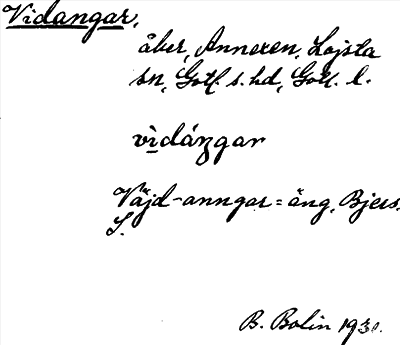 Vidangar,
åker, Annexen, Lojsta
sn, Gotl. s. hd, Gotl. l.
vìdáŋgar
Väjd-anngar = äng, Bjers.
S.
B. Bolin 193